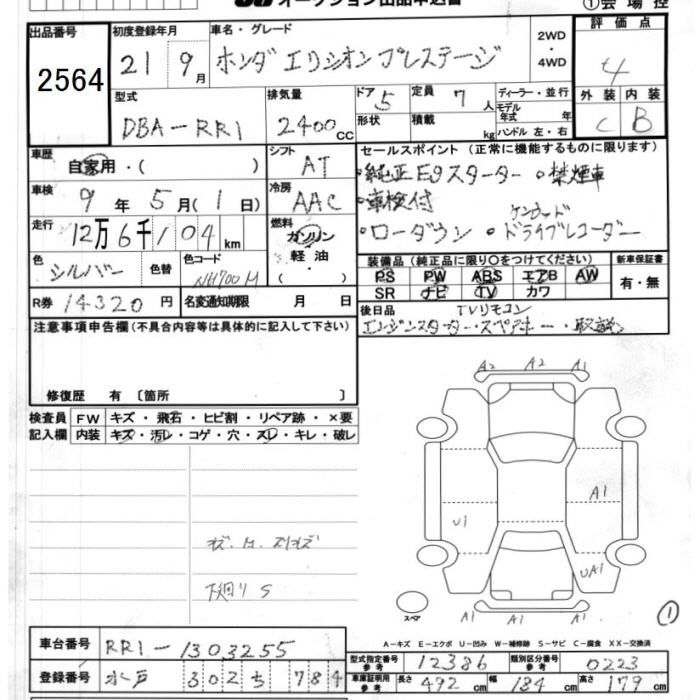 オークション出品申込書 ①会場控
出品番号 2564
初度登録年月 21 9月
車名・グレード ホンダ エリシオン プレステージ
2WD ・ 4WD
評価点 4
外装 C 内装 B
型式 DBA-RR1
排気量 2400cc
ドア 5 形状
定員 7人 積載 kg
ディーラー・並行
モデル年式 年
ハンドル 左・右
車歴 自家用・( )
シフト AT
車検 9年 5月(1日)
冷房 AAC
走行 12万6千104km
燃料 ガソリン 軽油・( )
色 シルバー 色替
色コード NH700M
R券 14320円
名変通知期限 月 日
セールスポイント (正常に機能するものに限ります)
・純正Egスターター ・禁煙車
・車検付
・ローダウン ・ケンウッド ドライブレコーダー
装備品(純正品に限り○をつけてください)
PS PW ABS エアB AW
SR ナビ TV カワ
新車保証書 有・無
後日品 TVリモコン
エンジンスターター・スペアキー・取説
注意事項申告欄(不具合内容等は具体的に記入して下さい)
修復歴 有 〔箇所 〕
検査員記入欄
FW キズ・飛石・ヒビ割・リペア跡・×要
内装 キズ・汚レ・コゲ・穴・スレ・キレ・破レ
下廻りS
A2 A2 A1
A1
U1
UA1
A1 A1 A1
スペア
①
A-キズ E-エクボ U-凹み W-補修跡 S-サビ C-腐食 XX-交換済
車台番号 RR1-1303255
登録番号 水戸 302 ち 784
型式指定番号 参考 12386 類別区分番号 参考 0223
車庫証明用 参考 長さ 492cm 幅 184cm 高さ 179cm